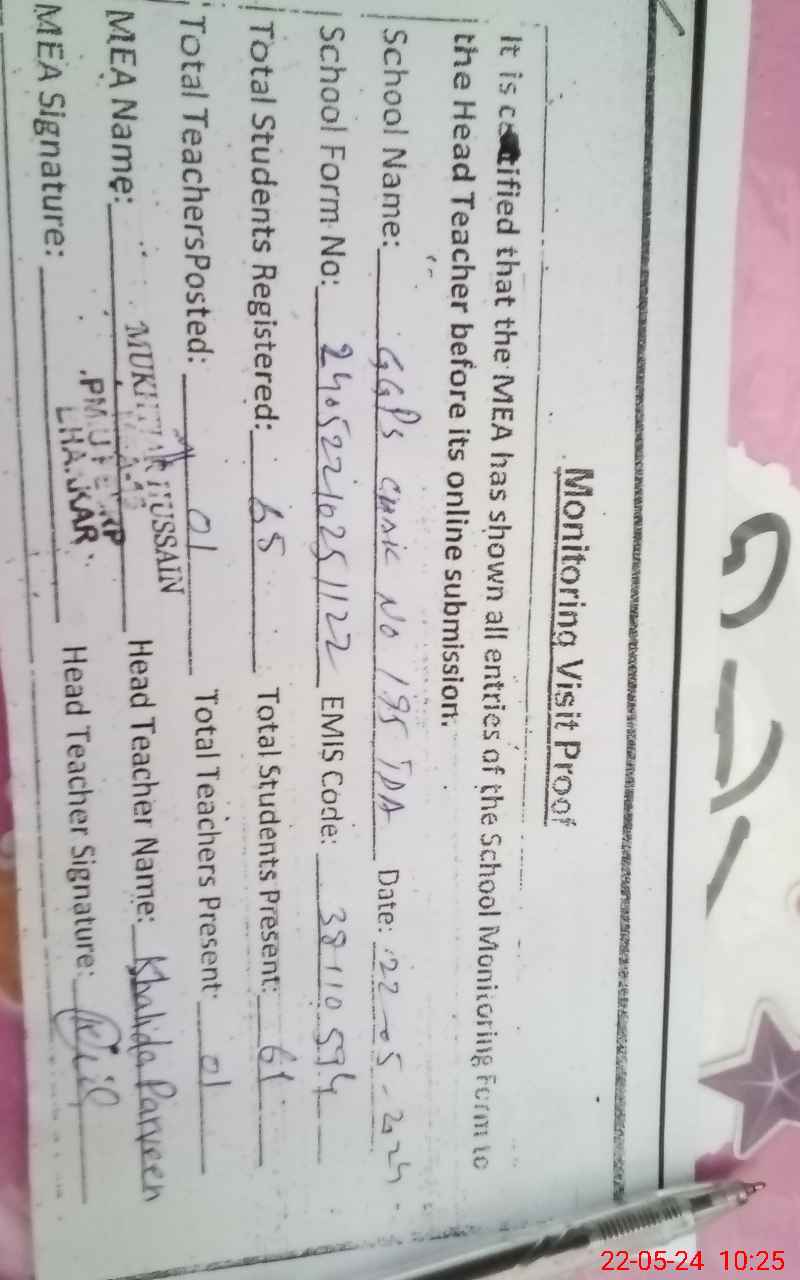 Monitoring Visit Proof
It is certified that the MEA has shown all entries of the School Monitoring Form to
the Head Teacher before its online submission.
School Name: GGPS CHAK NO 195 TDA Date: 22-05-2024
School Form No: 24052210251122 EMIS Code: 38110594
Total Students Registered: 65 Total Students Present: 61
Total TeachersPosted: 01 Total Teachers Present: 01
MEA Name: MUKHTAR HUSSAIN Head Teacher Name: Khalida Parveen
MEA Signature: Head Teacher Signature:
22-05-24 10:25